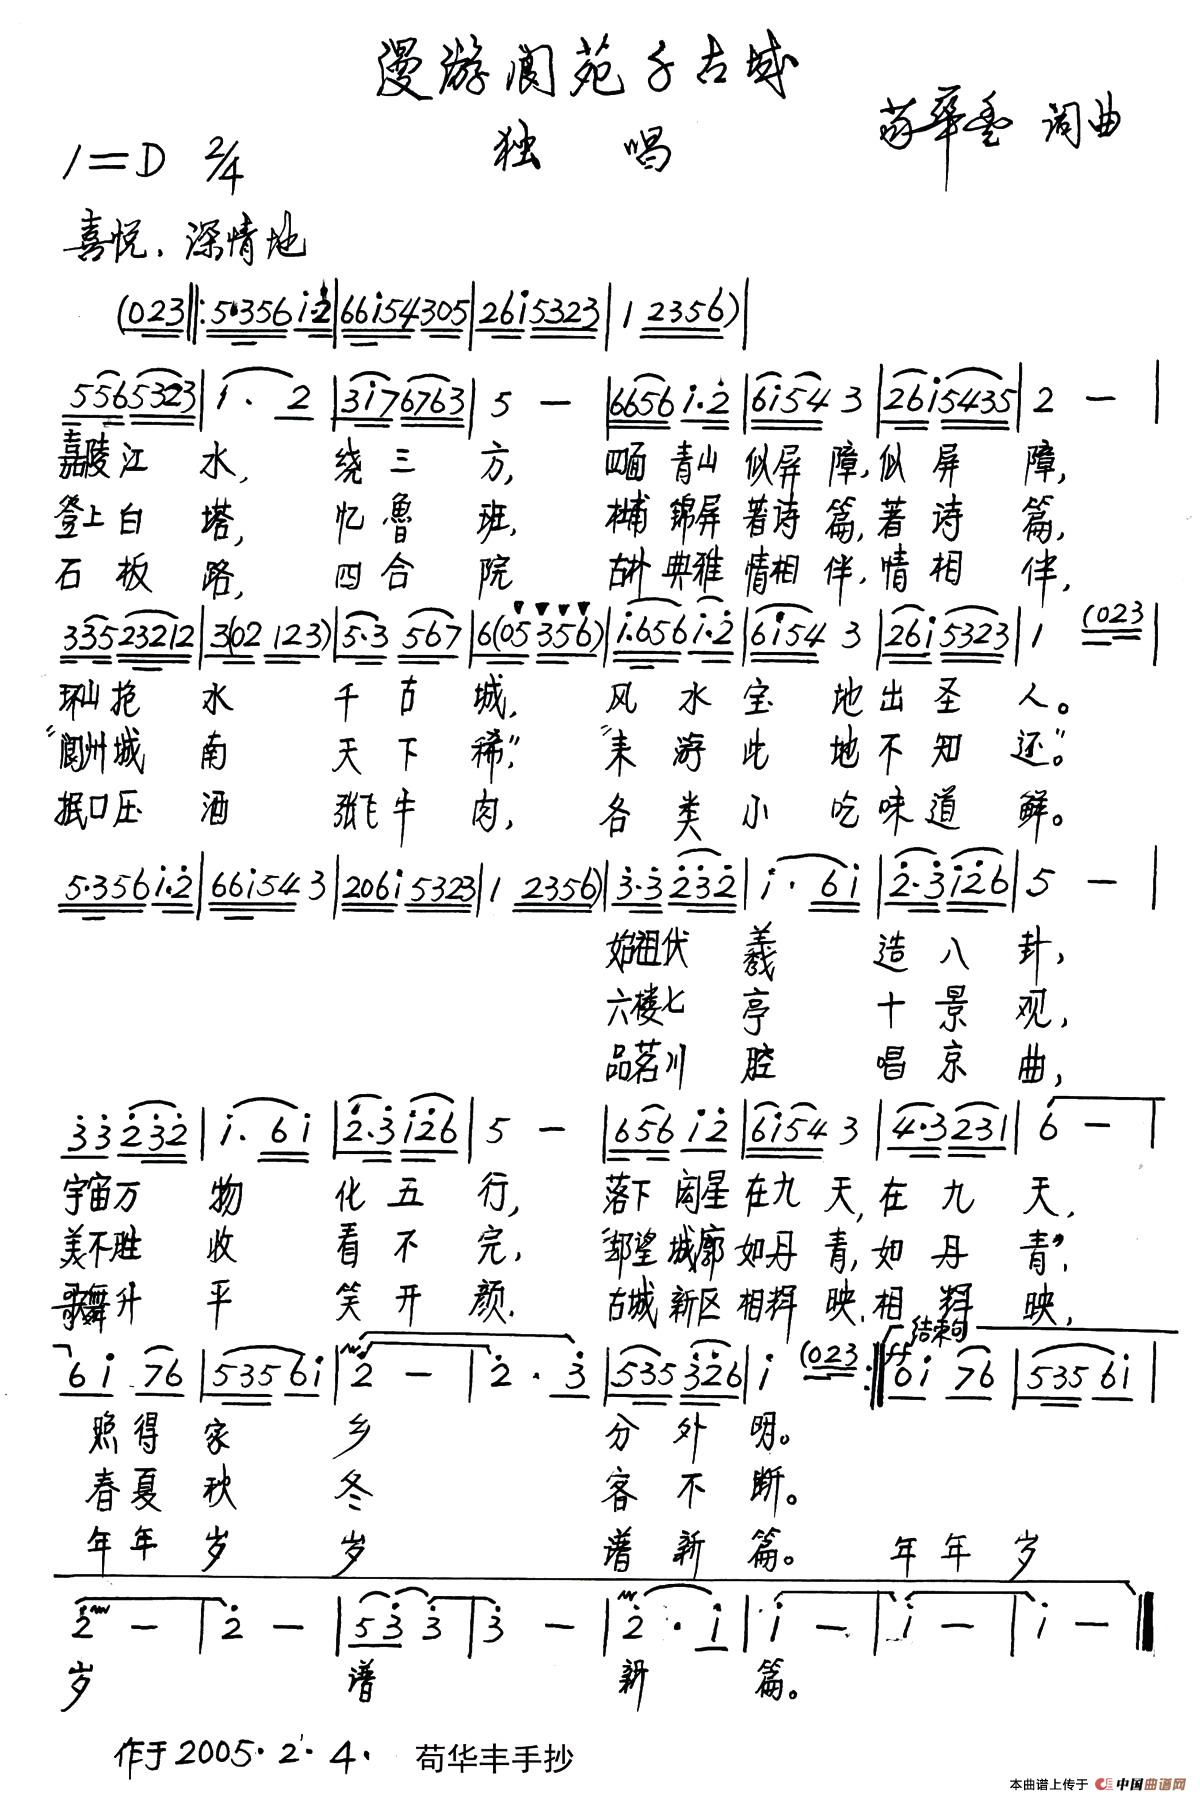 漫游阆苑千古城
独 唱
苟华丰 词曲
1=D 2/4
喜悦、深情地
(023‖:5·356i·2|66i54305|26i5323|1 2356)|
5565323|1·2|3i76763|5 —|6656i·2|6i543|26i5435|2 —|
嘉陵江水,绕三方,四面青山似屏障,似屏障,
登上白塔,忆鲁班,杜甫锦屏著诗篇,著诗篇,
石板路,四合院 古朴典雅情相伴,情相伴,
33523212|3(02 123)|5·3 567|6(05 356)|i·656i·2|6i54 3|26i 5323|1 (023|
环山抱水千古城,风水宝地出圣人。
“阆州城南天下稀”,“来游此地不知还”。
抿口压酒张飞牛肉,各类小吃味道鲜。
5·356i·2|66i543|206i5323|1 2356)|3·3232|i·6i|2·3i26|5 —|
始祖伏羲造八卦,
六楼七亭十景观,
品茗川腔唱京曲,
33232|i·6i|2·3i26|5 —|656 i2|6i54 3|4·3231|6 —|
宇宙万物化五行,落下闳星在九天,在九天,
美不胜收看不完,“却望城廓如丹青,如丹青”,
歌舞升平笑开颜.古城新区相辉映,相辉映,
结束句
6i 76|535 6i|2 —|2·3|535326|i (023:‖ff 0i 76|535 6i|
照得家乡分外明。
春夏秋冬客不断。
年年岁岁谱新篇。年年岁
2 —|2 —|533|3 —|2·i|i —|i —|i —‖
岁谱新篇。
作于2005.2.4. 苟华丰手抄
本曲谱上传于 中国曲谱网